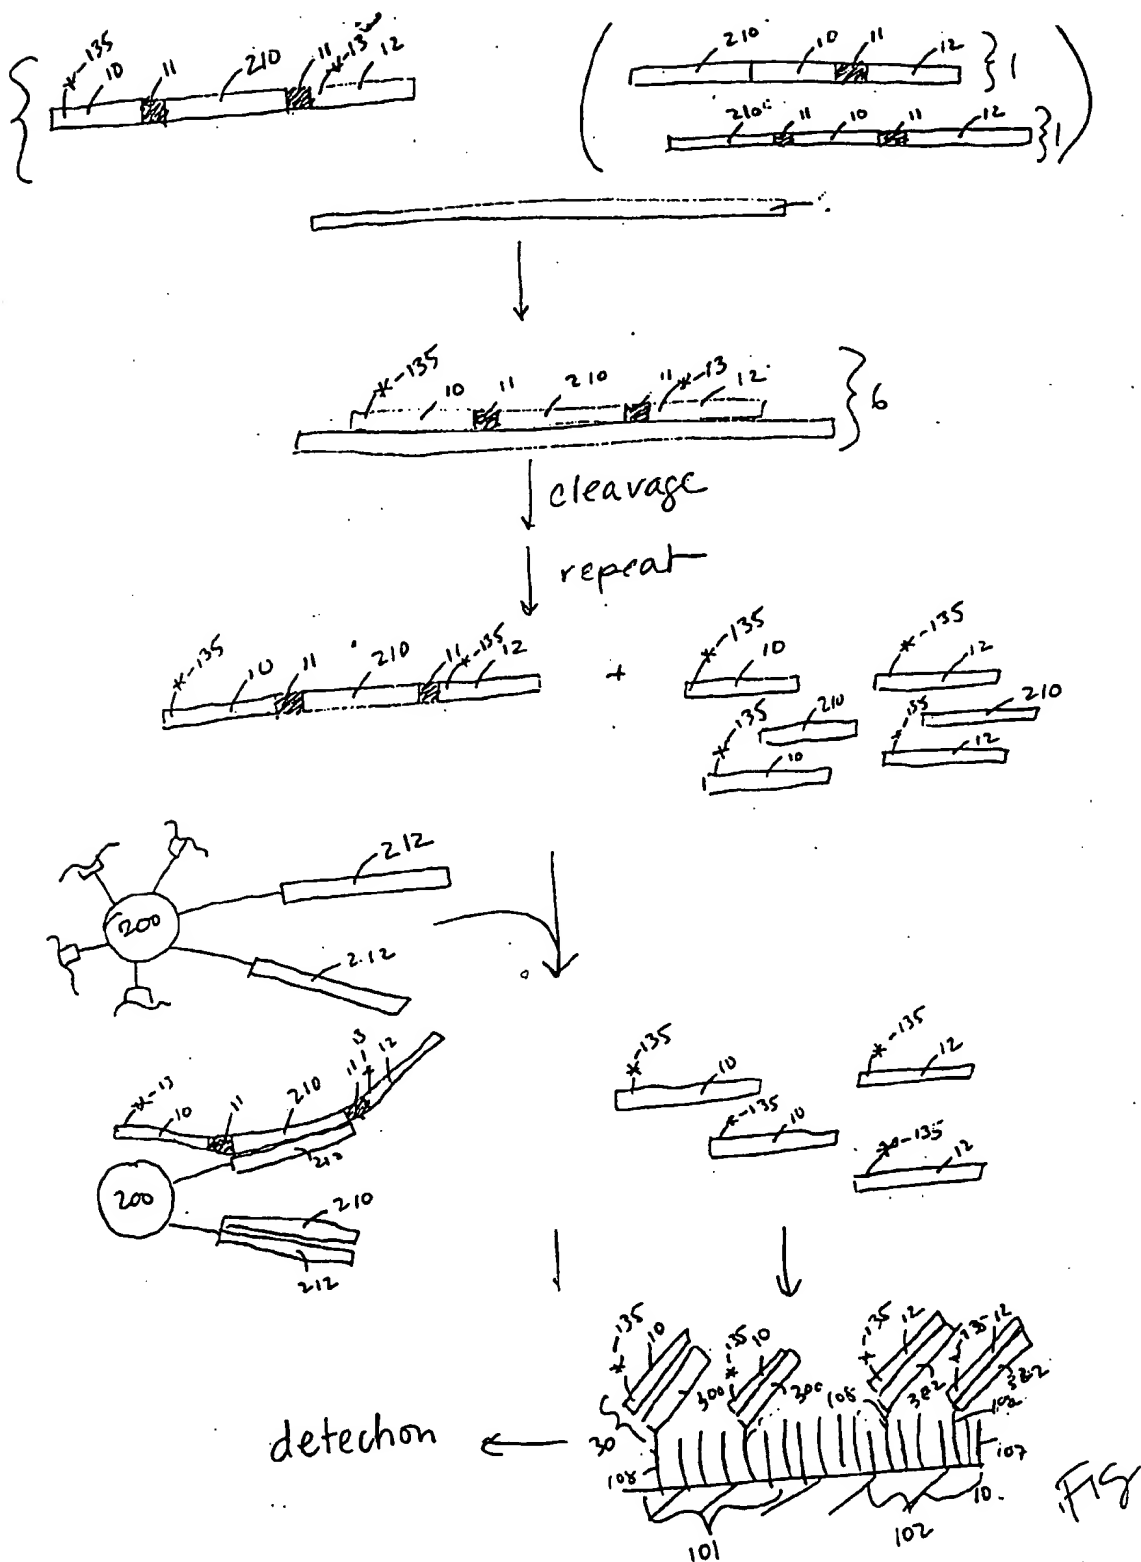 *-135 10 11 210 11 *-13 12
210 10 11 12 }1
210 11 10 11 12 }1
*-135 10 11 210 11 *-13 12 }6
cleavage
repeat
*-135 10 11 210 11 *-135 12 + *-135 10 *-135 12
210 210
*-135 10 *-135 12
212
200
212
*-135 10 *-135 12
*-13 10 11 210 11 13 12
*-135 10
212
*-135 12
200
210
212
*-135 10 *-135 10 *-135 12 *-135 12
300 300 108 302 302
30 102
108 107
detection
10.
101 102
FIG